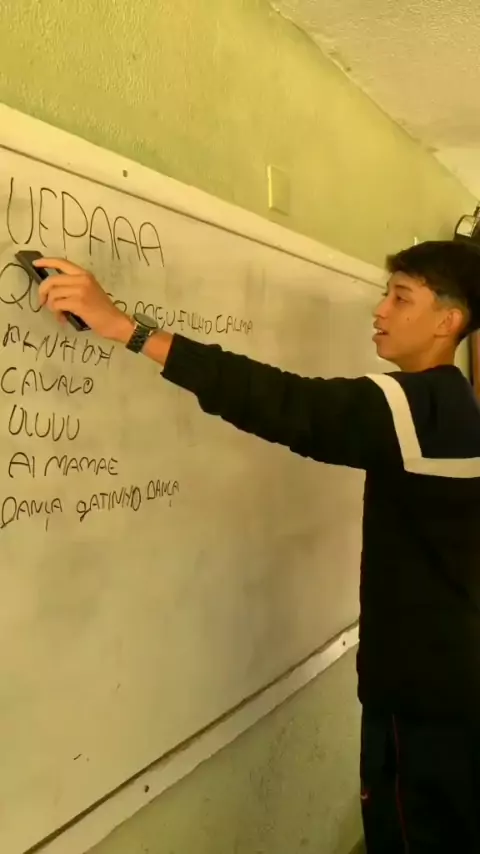 UEPAAA
MEU FILHO CALMA
CAVALO
ULUUU
AI MAMAE
DANÇA GATINHO DANÇA